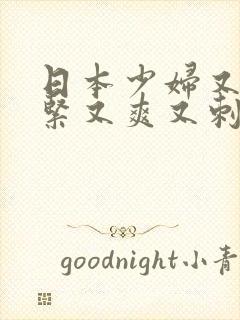 日本少婦又
緊又爽又刺
goodnight小青